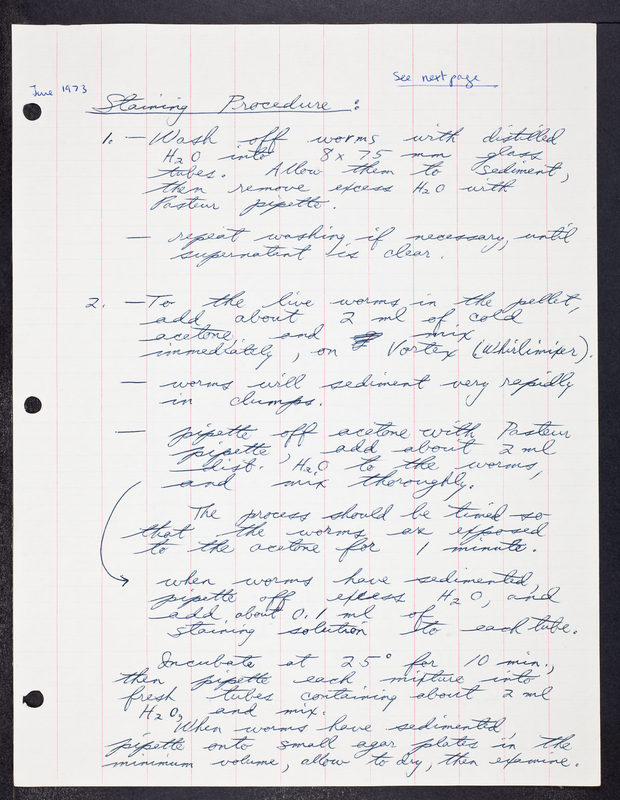 See next page
June 1973
Staining Procedure :
1. — Wash off worms with distilled
H₂O into 8 x 75 mm glass
tubes. Allow them to sediment,
then remove excess H₂O with
Pasteur pipette.
— repeat washing if necessary, until
supernatent is clear.
2. — To the live worms in the pellet,
add about 2 ml of cold
acetone, and mix
immediately, on Vortex (Whirlimixer).
— worms will sediment very rapidly
in clumps.
— pipette off acetone with Pasteur
pipette, add about 2 ml
dist. H₂O to the worms,
and mix thoroughly.
The process should be timed so
that the worms are exposed
to the acetone for 1 minute.
when worms have sedimented,
pipette off excess H₂O, and
add about 0.1 ml of
staining solution to each tube.
Incubate at 25° for 10 min.,
then pipette each mixture into
fresh tubes containing about 2 ml
H₂O, and mix.
When worms have sedimented
pipette onto small agar plates in the
minimum volume, allow to dry, then examine.